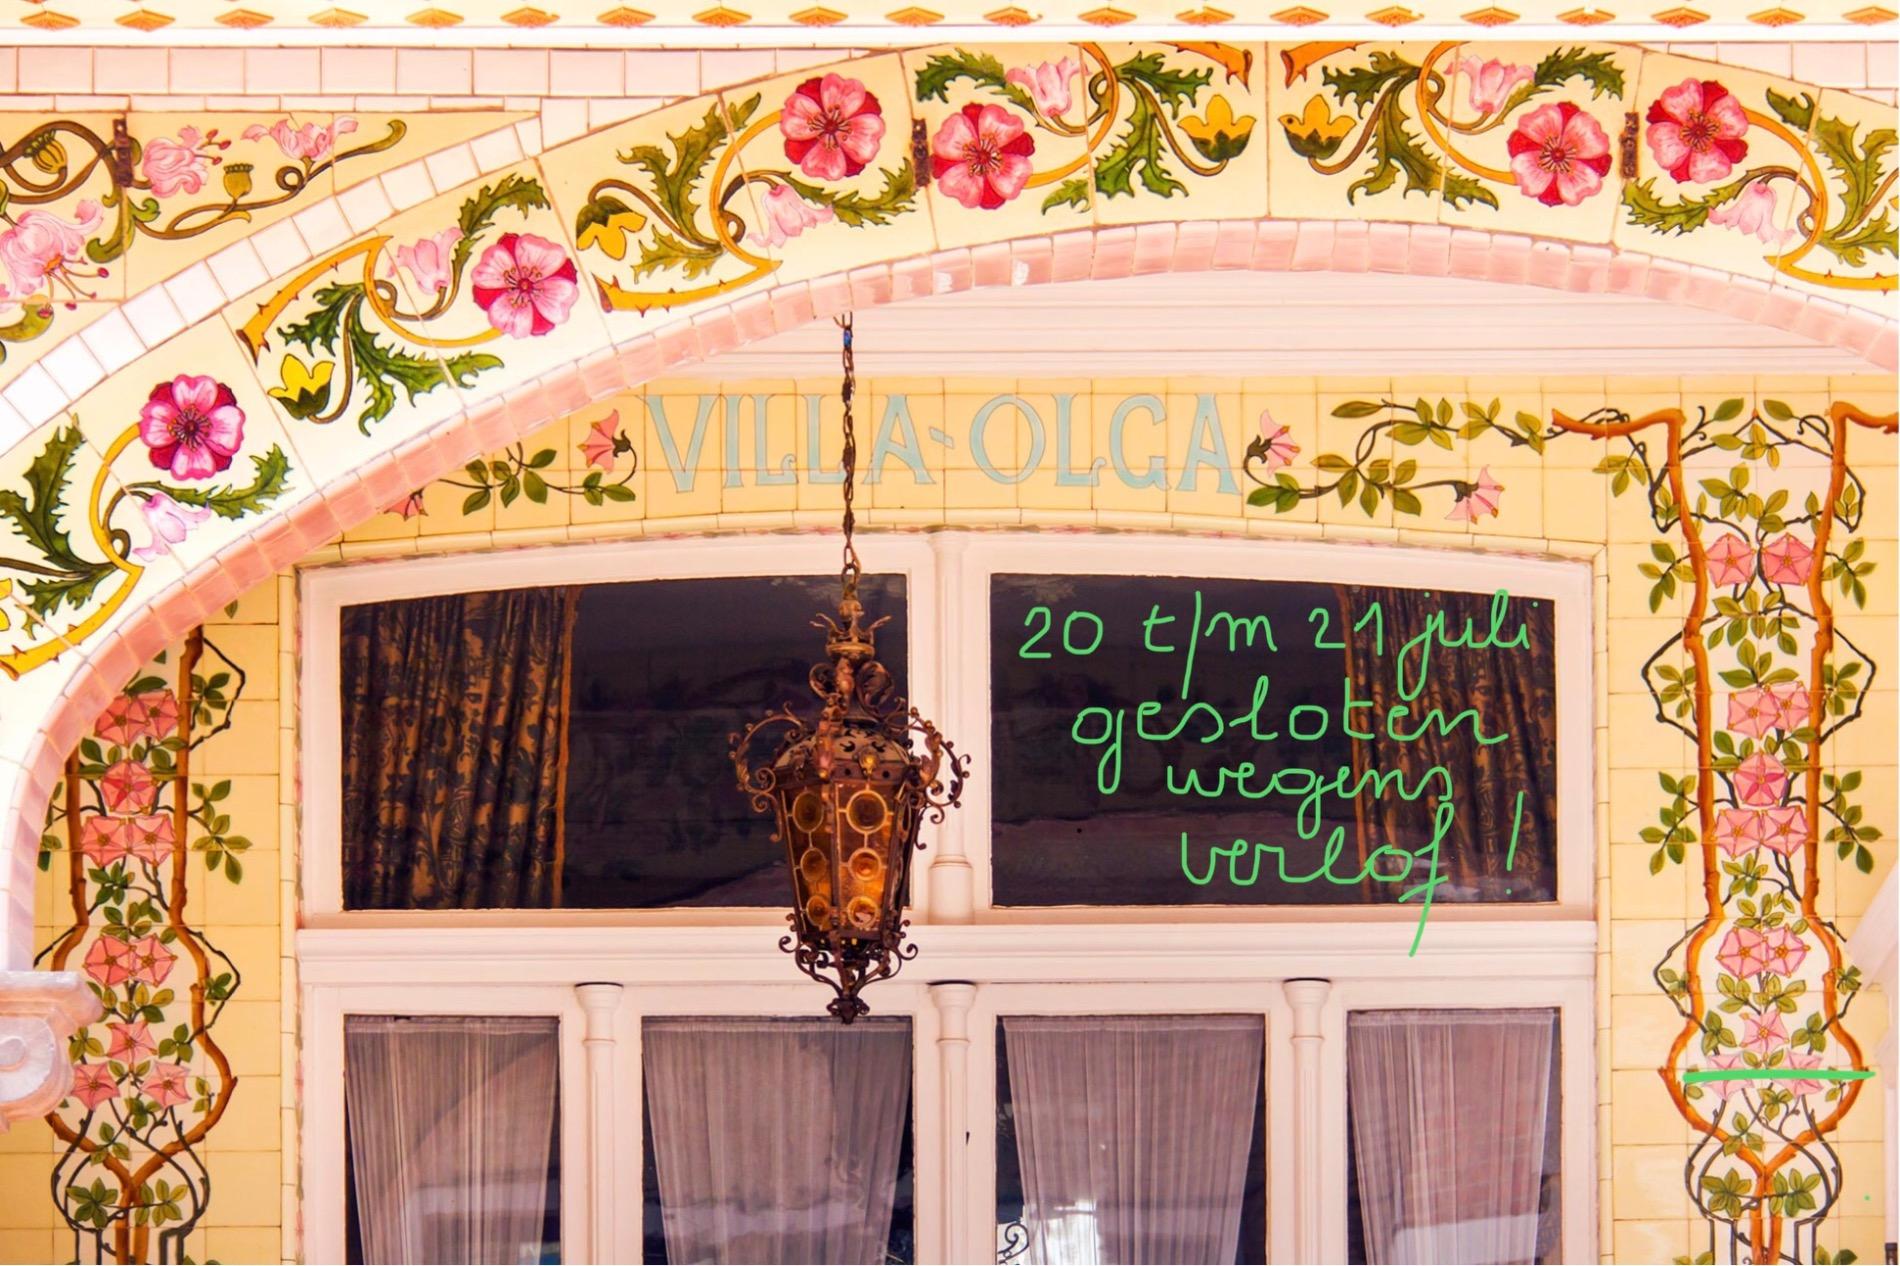 VILLA-OLGA
20 t/m 21 juli
gesloten
wegens
verlof!